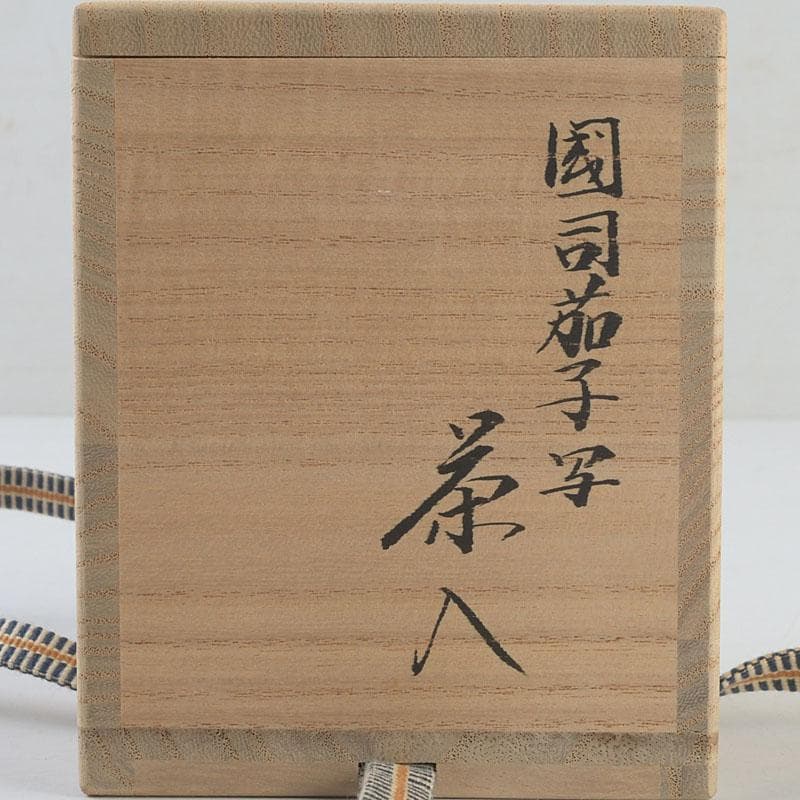 國司茄子写
茶入